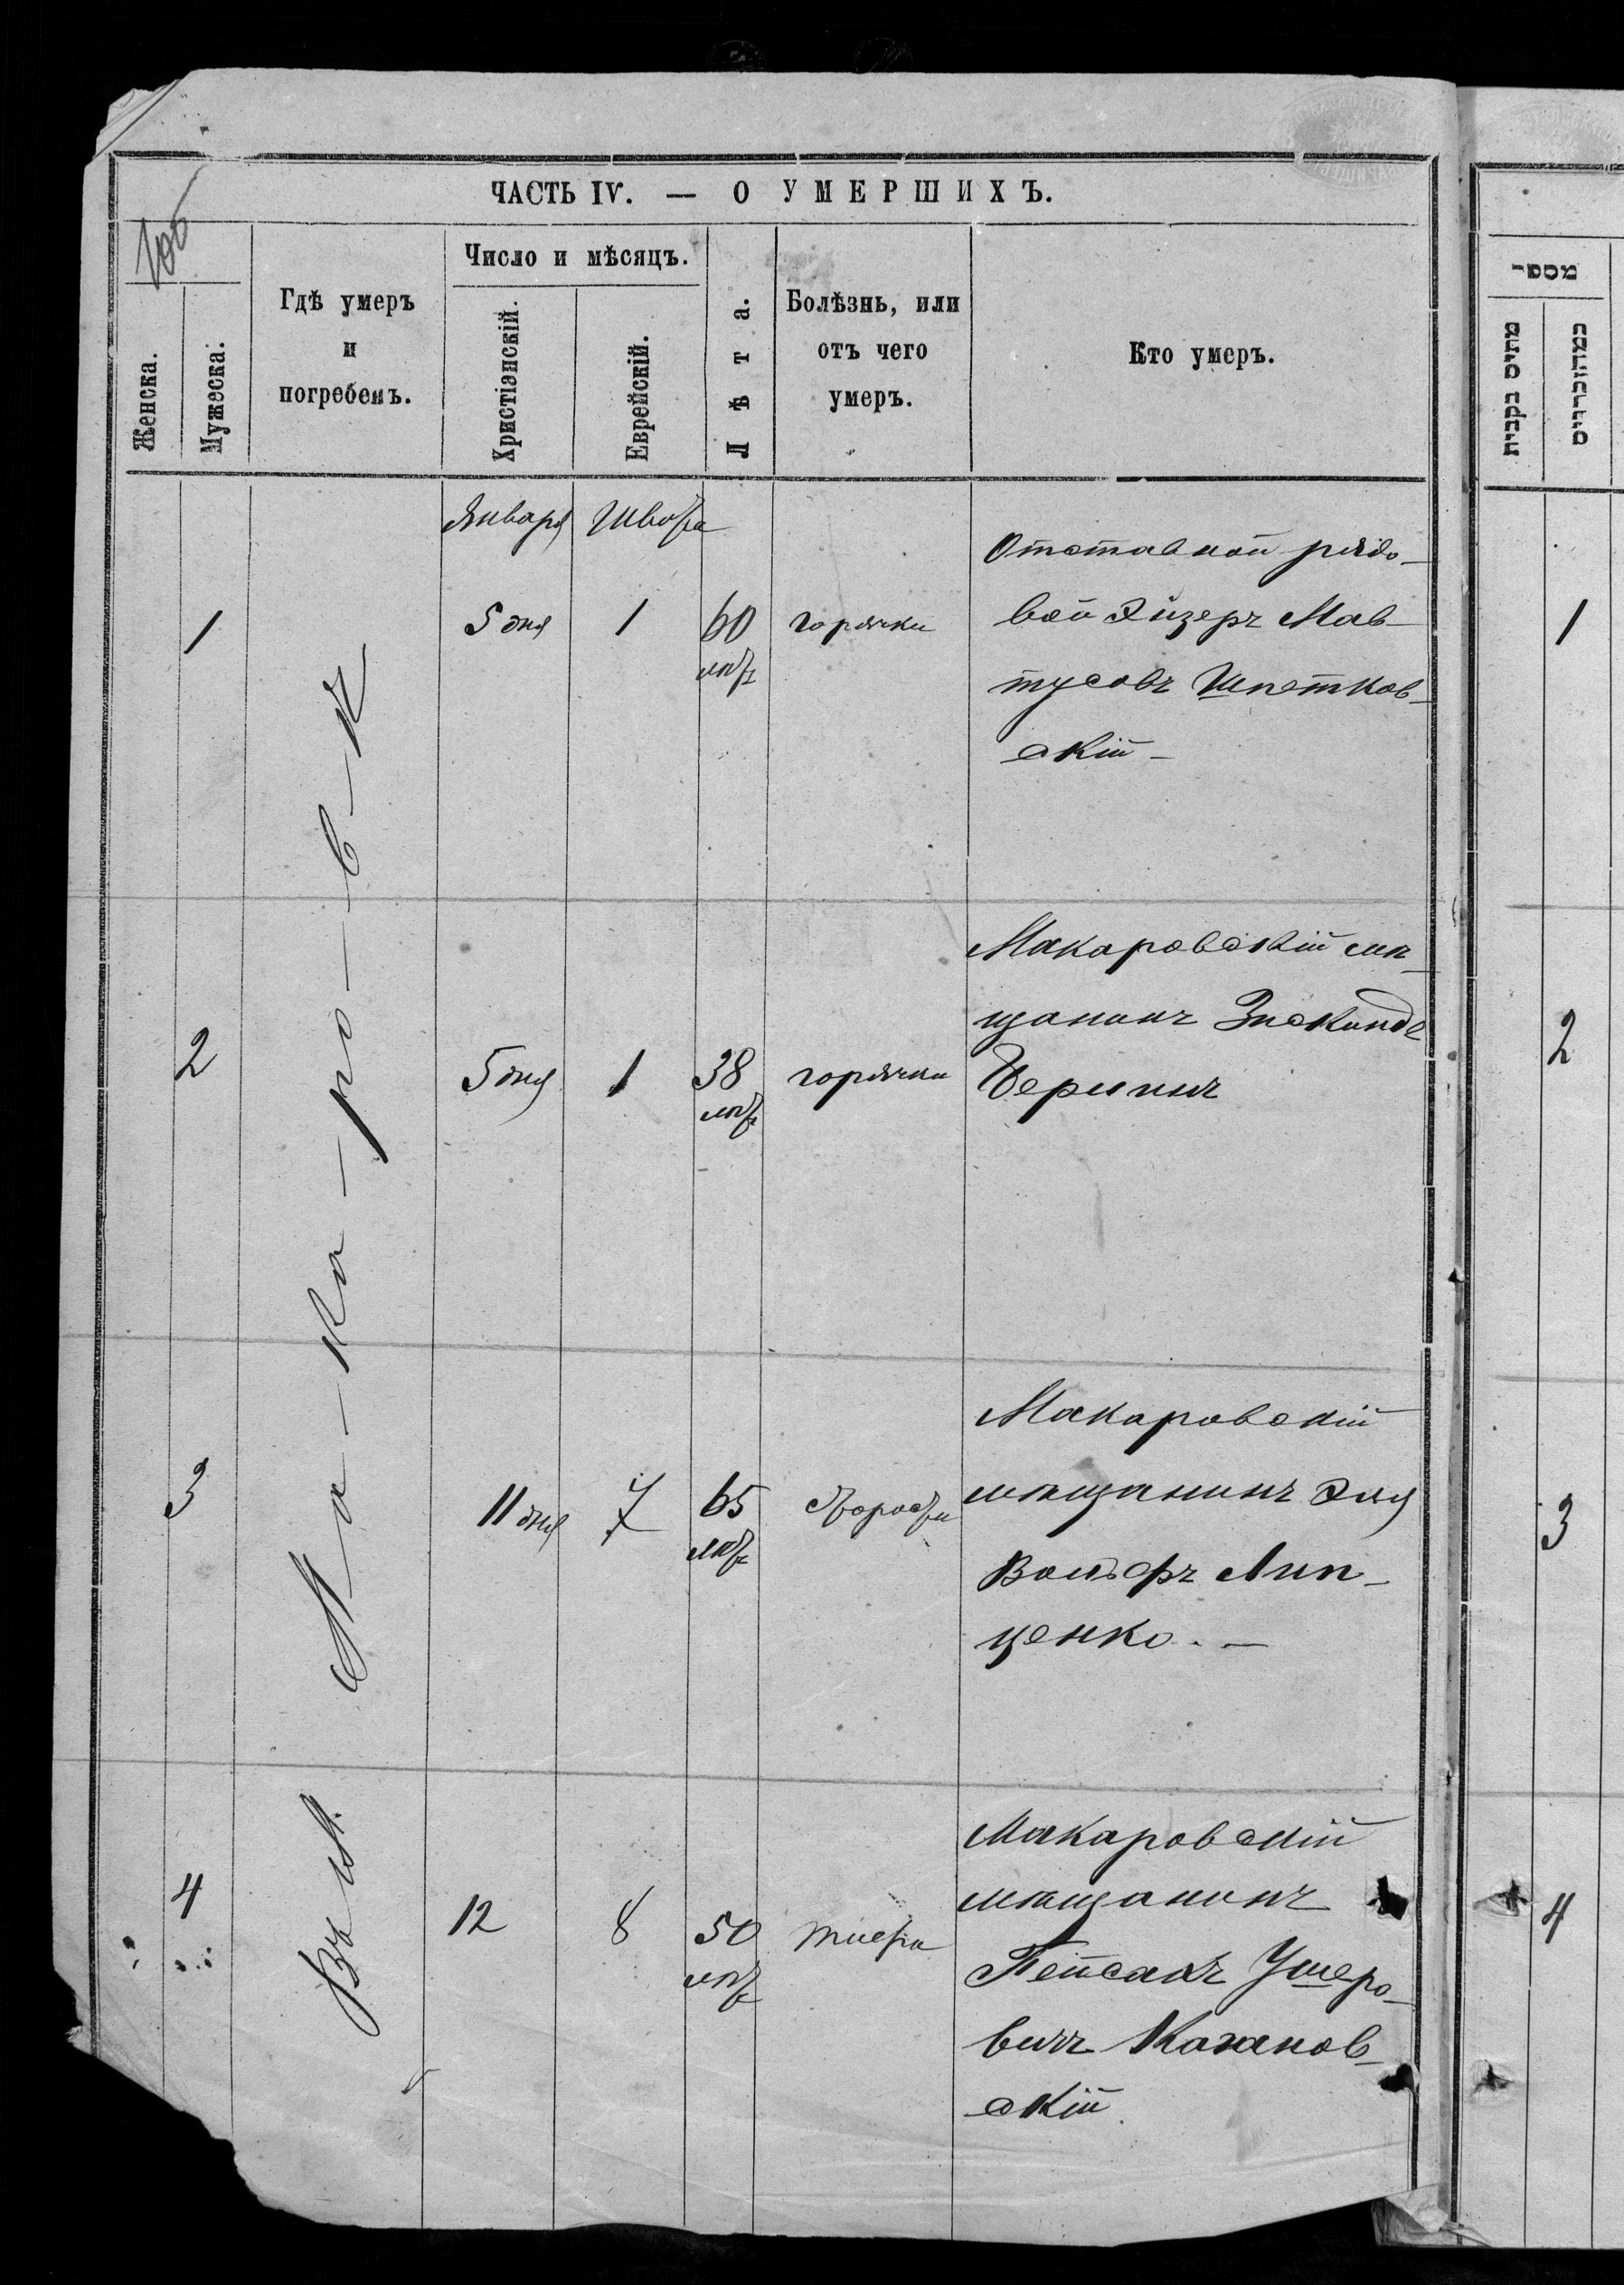 ЧАСТЬ IV. — О УМЕРШИХЪ.
Женска.
Мужеска.
Гдѣ умеръ
и
погребенъ.
Число и мѣсяцъ.
Христіанскій.
Еврейскій.
Лѣта.
Болѣзнь, или
отъ чего
умеръ.
Кто умеръ.
מספר
Въ М. Ма-ка-ро-в-ѣ
Января Швата
1
5 дня
1
60
лѣтъ
горячки
Отставной рядо-
вой Эйзеръ Мав-
тусовъ Шпетков-
скій -
1
2
5 дня
1
38
лѣтъ
горячки
Макаровскій мѣ-
щанинъ Зискинде
2
3
11 дня
7
65
лѣтъ
старости
Макаровскій
мѣщанинъ Эля
Вольфъ Лип-
ценко. -
3
4
12
8
50
лѣтъ
тифа
Макаровскій
мѣщанинъ
Пейсахъ Ушеро-
вичъ Казанов-
скій
4